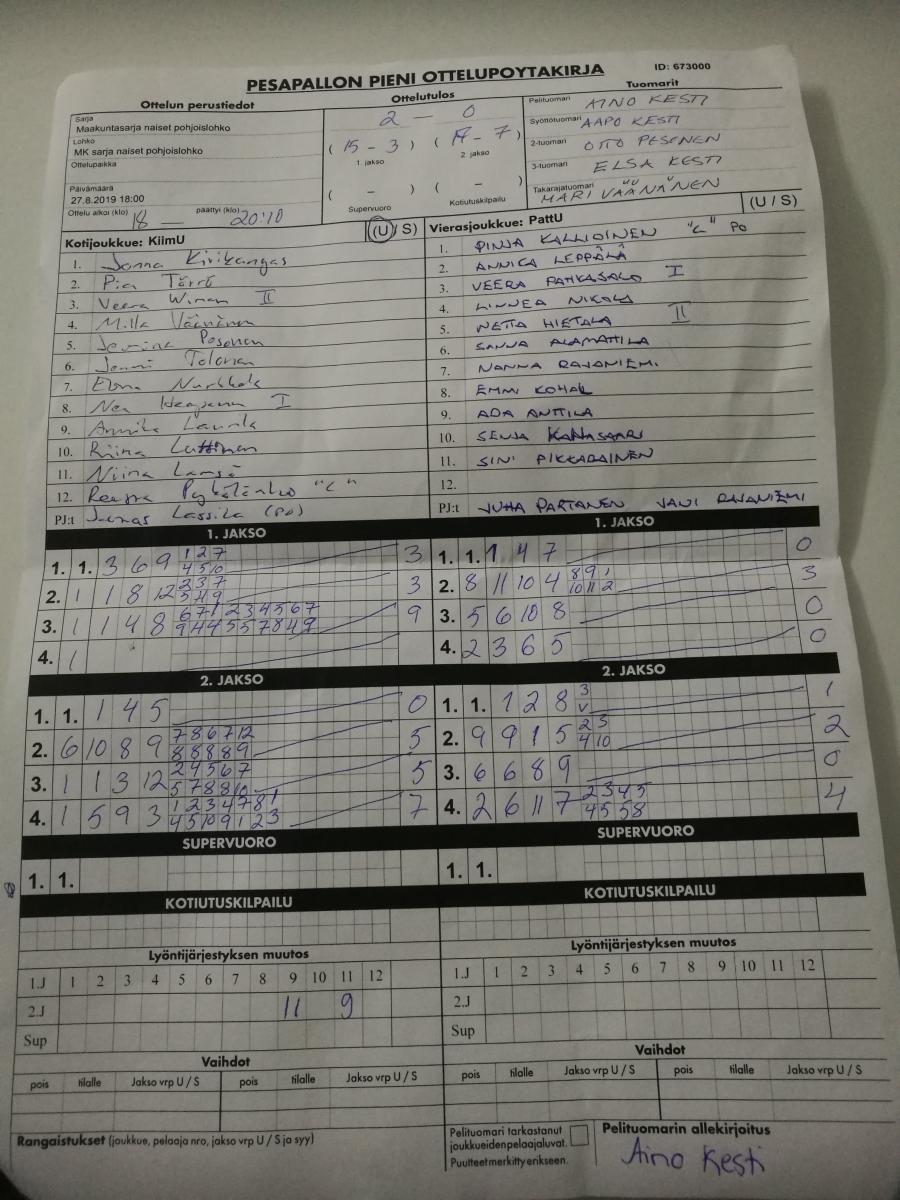 PESÄPALLON PIENI OTTELUPÖYTÄKIRJA
ID: 673000
Ottelun perustiedot
Sarja
Maakuntasarja naiset pohjoislohko
Lohko
MK sarja naiset pohjoislohko
Ottelupaikka
Päivämäärä
27.8.2019 18:00
Ottelu alkoi (klo) 18 päättyi (klo) 20:10
Ottelutulos
2 - 0
( 15 - 3 ) ( 17 - 7 )
1. jakso 2. jakso
( - ) ( - )
Supervuoro Kotiutuskilpailu
Tuomarit
Pelituomari AINO KESTI
Syöttötuomari AAPO KESTI
2-tuomari OTTO PESONEN
3-tuomari ELSA KESTI
Takarajatuomari MARI VÄÄNÄNEN
Kotijoukkue: KiimU (U / S)
1. Jonna Kirikangas
2. Pia Törrö
3. Veera Wiman II
4. Milla Väänänen
5. Jemina Pesonen
6. Jenni Tolonen
7. Elina
8. Nea I
9. Annika Laurila
10. Riina Luttinen
11. Niina Lämsä
12. "C"
PJ:t Joonas Lassila (PO)
Vierasjoukkue: PattU (U / S)
1. PINJA KALLIOINEN "C" PO
2. ANNIKA LEPPÄLÄ
3. VEERA PAHKASALO I
4. LINNEA NIKOLA
5. NETTA HIETALA II
6. SANNA ALAMATTILA
7. NANNA RAJANIEMI
8. EMMI
9. ADA ANTTILA
10. SENJA
11. SINI PIKKARAINEN
12.
PJ:t JUHA PARTANEN JANI RAJANIEMI
1. JAKSO
1. 1. 3 6 9 1 2 7 3
4 5 10
2. 1 1 8 12 2 3 7 3
5 4 9
3. 1 1 4 8 6 7 1 2 3 4 5 6 7 9
9 4 4 5 5 7 8 4 9
4. 1
1. JAKSO
1. 1. 1 4 7 0
2. 8 11 10 4 8 9 1 3
10 11 2
3. 5 6 10 8 0
4. 2 3 6 5 0
2. JAKSO
1. 1. 1 4 5 0
2. 6 10 8 9 7 8 6 7 12 5
8 8 8 8 9
3. 1 1 3 12 2 4 5 6 7 5
5 7 8 8 10
4. 1 5 9 3 1 2 3 4 7 8 1 7
4 5 10 9 1 2 3
2. JAKSO
1. 1. 1 2 8 3 1
V
2. 9 9 1 5 2 3 2
4 10
3. 6 6 8 9 0
4. 2 6 11 7 2 3 4 5 4
4 5 5 8
SUPERVUORO
1. 1.
SUPERVUORO
1. 1.
KOTIUTUSKILPAILU
KOTIUTUSKILPAILU
Lyöntijärjestyksen muutos
1.J 1 2 3 4 5 6 7 8 9 10 11 12
2.J 11 9
Sup
Lyöntijärjestyksen muutos
1.J 1 2 3 4 5 6 7 8 9 10 11 12
2.J
Sup
Vaihdot
pois tilalle Jakso vrp U / S pois tilalle Jakso vrp U / S
Vaihdot
pois tilalle Jakso vrp U / S pois tilalle Jakso vrp U / S
Rangaistukset (joukkue, pelaaja nro, jakso vrp U / S ja syy)
Pelituomari tarkastanut
joukkueidenpelaajaluvat.
Puutteetmerkittyerikseen.
Pelituomarin allekirjoitus
Aino Kesti